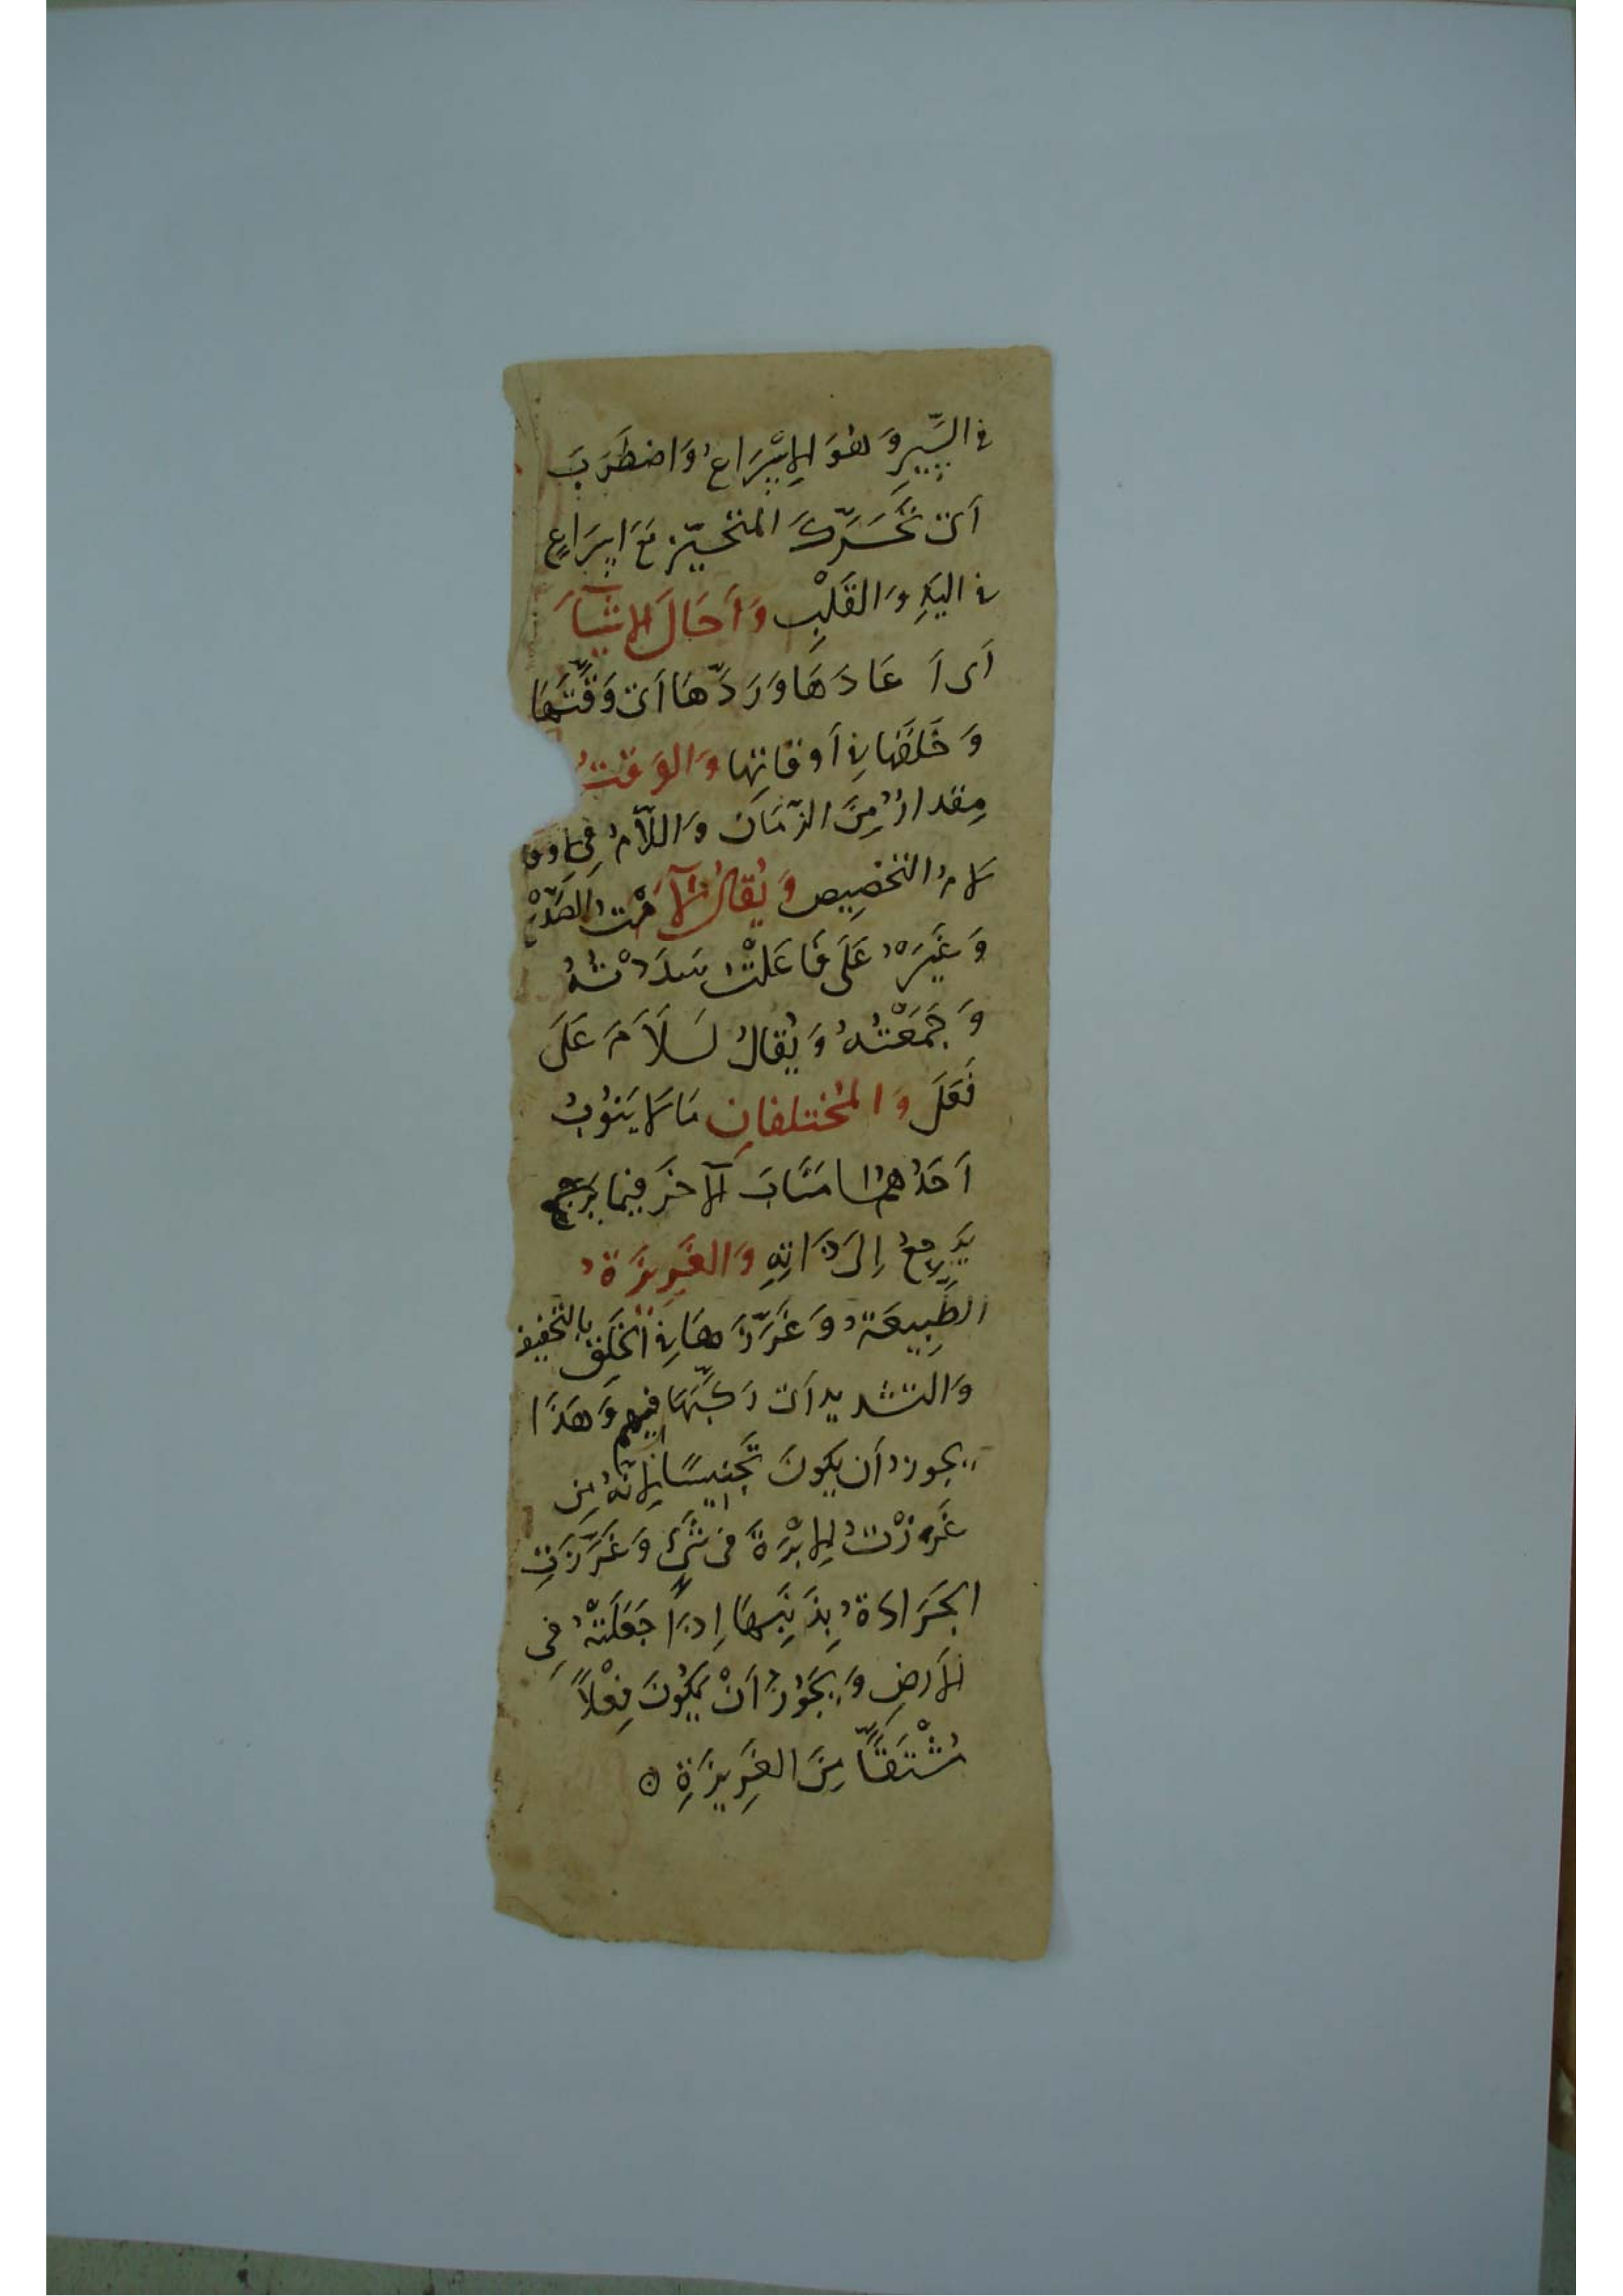 في السِّيرِ وَهُوَ الإسْرَاعُ وَاضطَرَبَ
أى تَحَرَّكَ المتحيّز مَعَ اسرَاعٍ
في اليَدِ وَالقَلْبِ وَأَحَالَ الإشيَآءَ
أى أَعَادَهَا وَرَدَّهَا أى وَقَّتَهَا
وَخَلَقَهَا في أوقاتِها وَالوَقتُ
مِقدارٌ مِنَ الزّمَانِ وَاللاَّمُ في
لامُ التخصِيصِ وَيُقالُ لآمْتُ الصَدْعَ
وَغَيرَهُ عَلَى فَاعَلْتُ سَدَدْتُهُ
وَجَمَعْتُهُ وَيُقالُ لَلاَمَ عَلَى
فَعَلَ وَالمُختلفانِ مَا لا يَنُوبُ
أَحَدُهُمَا مَنَابَ الآخَرَ فِيما يَرجع
يَرجعُ إلَى ذَاتِهِ وَالغَرِيزَةُ
الطَبِيعَةُ وَغَرَّزَهَا في الخَلقِ بالتخفيف
وَالتشديد أى رَكَّبَهَا فيهم وَهَذَا
يجوزُ أن يكونَ تَجنِيسًا لِأنّهُ مِن
غَرَزْتُ الإبْرَةَ في شَىءٍ وَغَرَّزَتِ
الجَرَادَةُ بِذَنَبِهَا إذَا جَعَلَتْهُ فِي
الأرضِ وَيَجُوزُ أنْ يَكُونَ فِعْلاً
مُشْتَقًّا مِنَ الغَرِيزَةِ ⊙